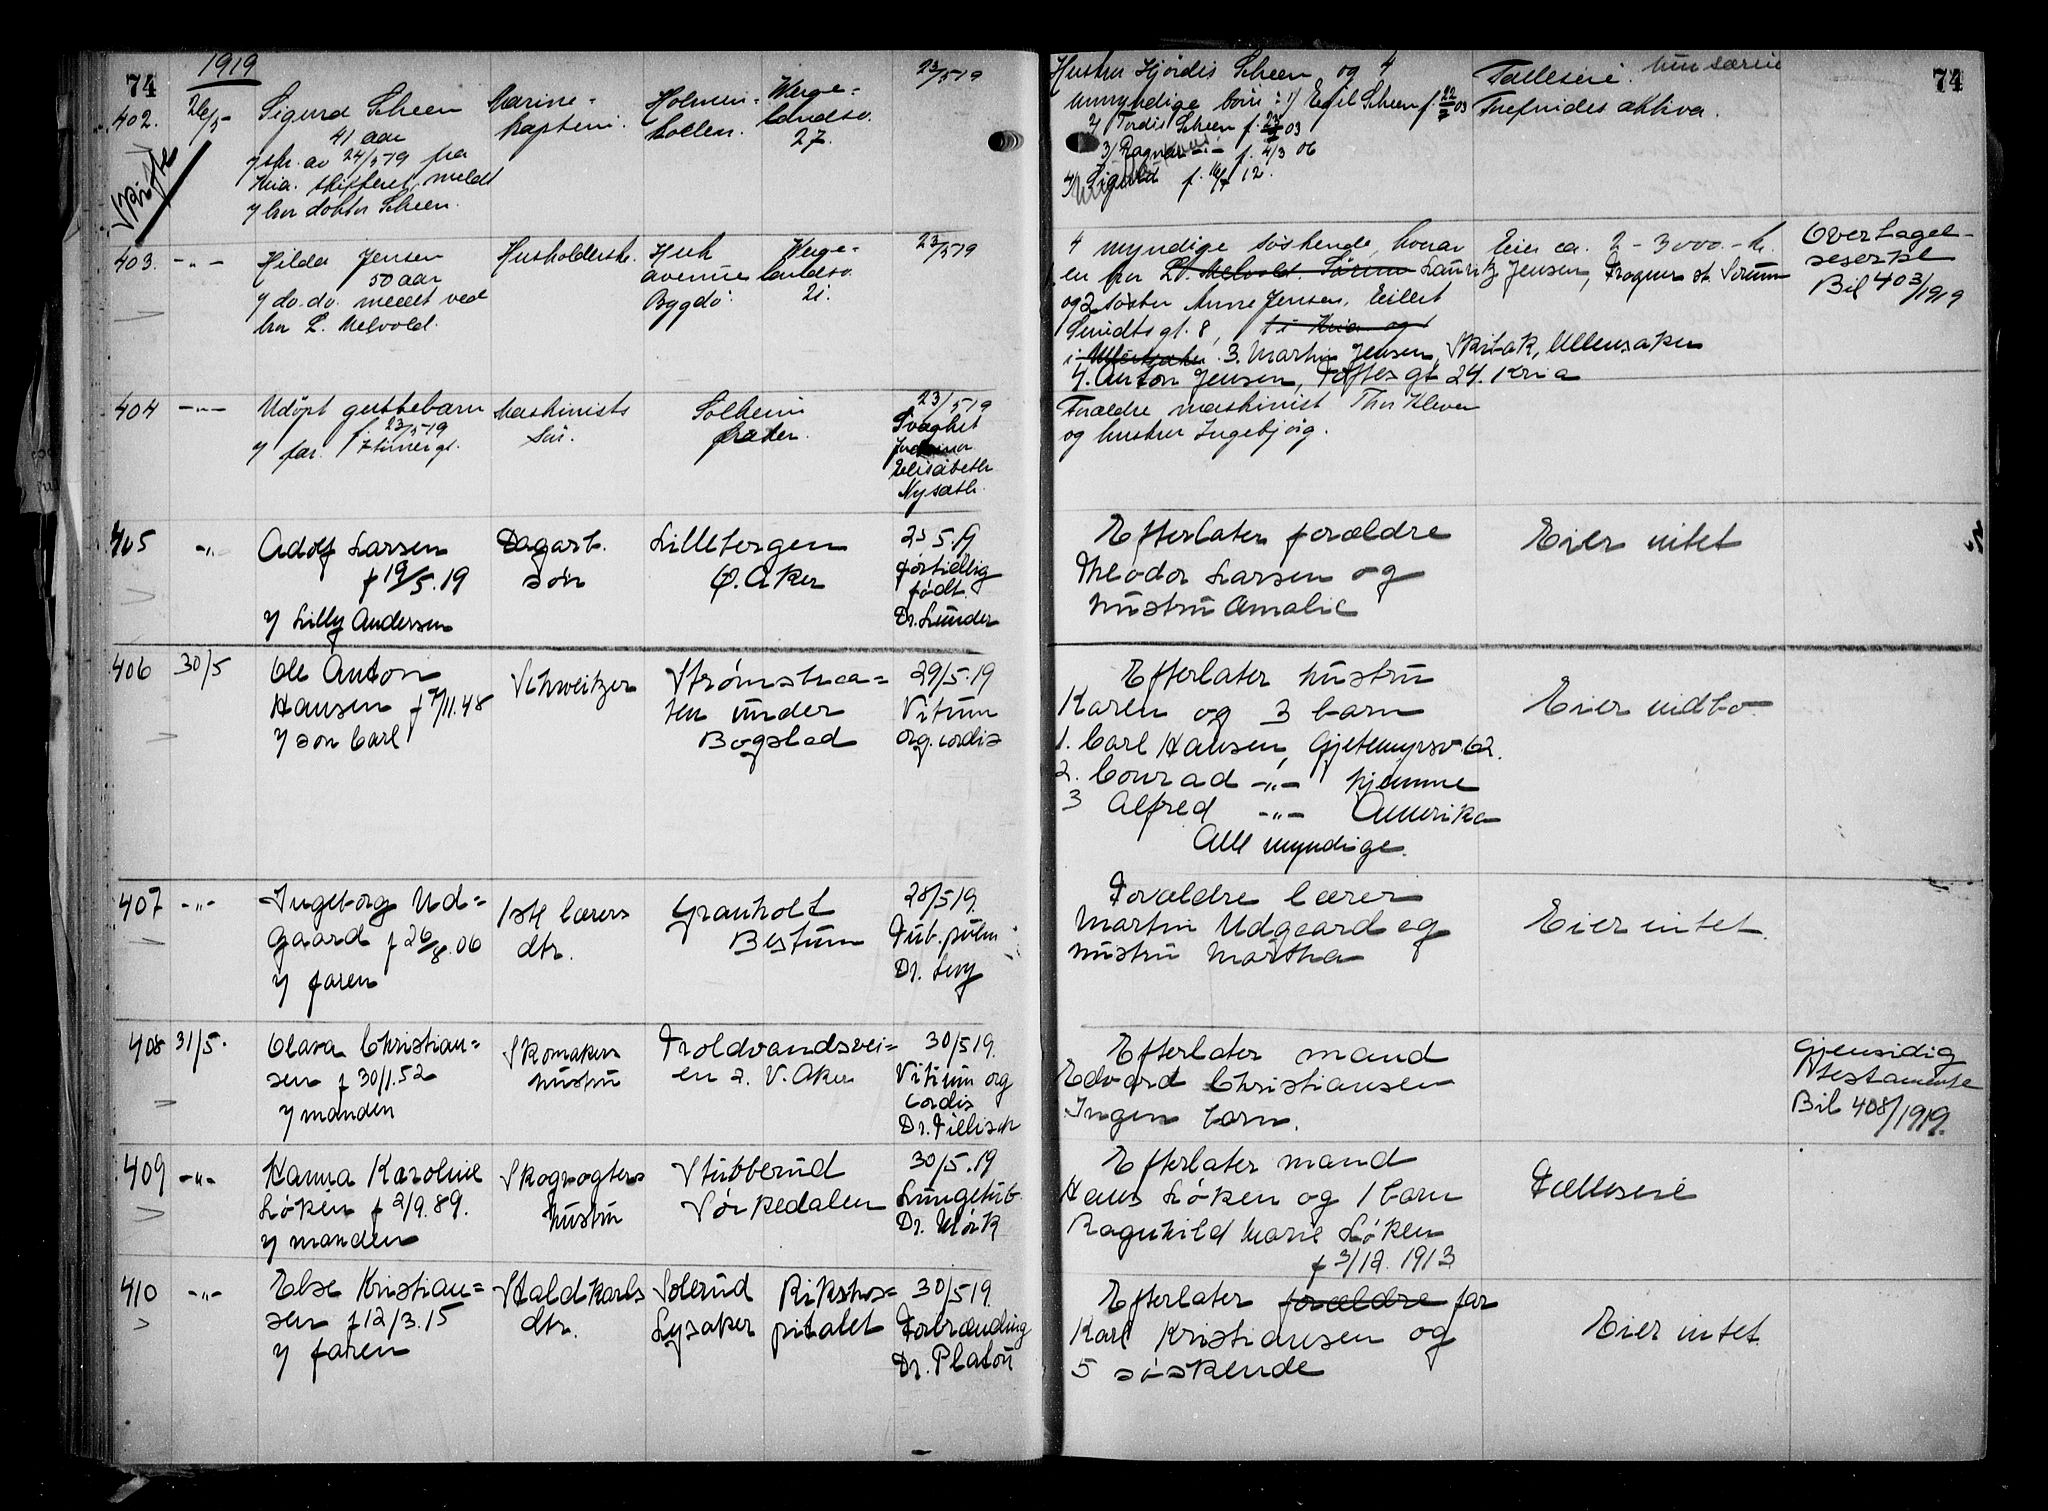 74
1919
402. 26/5 Sigurd Scheen Marine- Holmen- Werge- 23/5 19
41 aar kaptein. kollen. landsv.
27.
y skr. av 24/5 19 fra
Kria. skifteret, meldt
y hr doktor Scheen.
Skifte
403. -"- Hilda Jensen Husholderske. Huk Werge- 23/5 19
50 aar avenue landsv.
y do. do. meldt ved Bygdö. 21.
hr L. Melvold.
404 -"- Udöpt guttebarn Maskinists Solheim 23/5 19
f. 23/5 19 sön. Svaghet
y far. Jordmor
Elisabeth
Nysæth.
405 -"- Adolf Larsen Dagarb. Lillebergen 25 5.19
f 19/5.19 søn Ø. Aker førtidlig
født.
y Lilly Andersen Dr. Lunder
406 30/5 Ole Anton Schweitzer Strømstræ= 29/5.19
Hansen f 7/11.48 ten under Vitium
y søn Carl Bogstad org. cordis
407 -"- Ingeborg Ud= lærers Granholt 28/5 19.
gaard f 26/8.06 dtr. Bestum Tub. pulm
y faren Dr. Levy
408 31/5. Clara Christian= Skomakers Troldvandsvei= 30/5 19.
sen f 30/1.52 hustru en 2. V. Aker Vitium org
y manden cordis
Dr. Tillisch
409 -"- Hanna Karoline Skogvogters Stubberud 30/5.19
Løken f 2/9.89. hustru Sørkedalen Lungetub.
y manden Dr. Mørk
410 -"- Else Kristian= Staldkarls Solerud Rikshos= 30/5 19.
sen f 12/3.15 dtr. Lysaker pitalet Forbrænding
y faren Dr. Platou
74
Hustru Hjördis Scheen og 4 Fælleseie. hun særeie
umyndige börn: 1/ Egil Scheen f. 22/2 03 Indfrides aktiva.
2/ Tordis Scheen f. 03
3/ Ragnar -"- f. 4/3 06
4/ Sigurd f. 12.
4 myndige söskende, hvorav Eier ca. 2 - 3000.- kr. Overtagel-
en hr L. Melvold. Sörum Lauritz Jensen, Frogner st. Sörum seserkl
og 2 söster Anne Jensen, Eillert Bil 403/1919
Smidts gt. 8, 1 i Kria og
i Ullensaker. 3. Martin Jensen, Skibak, Ullensaker
4. Anton Jensen, Toftes gt 24. Kria
Forældre maskinist Thor Kleven
og hustru Ingebjörg.
Efterlater forældre Eier intet
Theodor Larsen og
hustru Amalie
Efterlater hustru
Karen og 3 barn Eier indbo
1. Carl Hansen, Gjetemyrsv. 62.
2. Conrad -"- hjemme
3 Alfred -"- Amerika
Alle myndige.
Forældre lærer
Martin Udgaard og Eier intet.
hustru Martha
Efterlater mand Gjensidig
Edvard Christiansen testamente
Ingen barn. Bil 408/1919.
Efterlater mand
Hans Løken og 1 barn Fælleseie
Ragnhild Marie Løken
f 3/12. 1913
Efterlater forældre far
Karl Kristiansen og Eier intet.
5 søskende